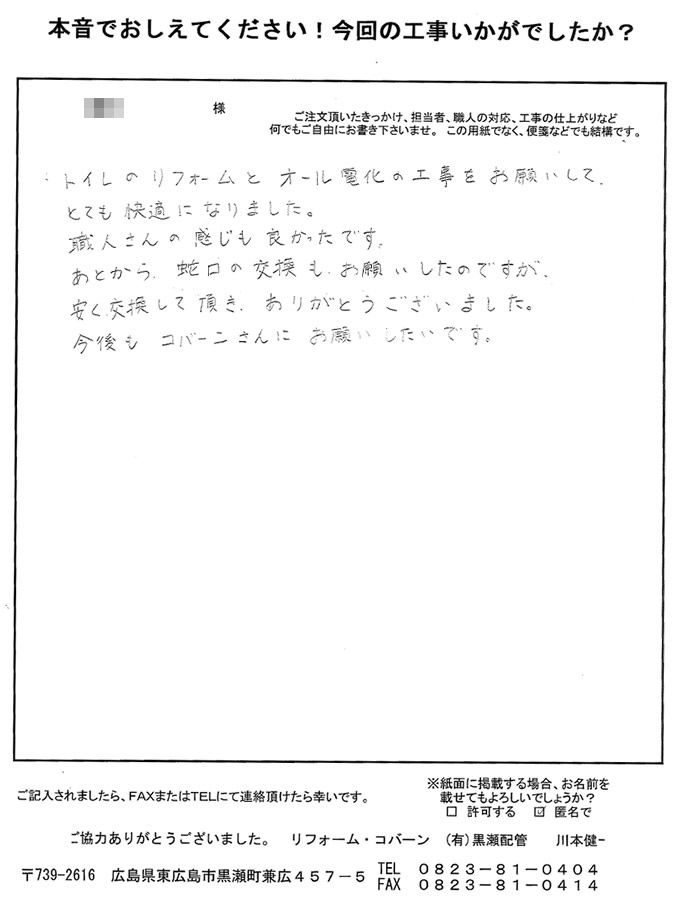 本音でおしえてください！今回の工事いかがでしたか？
様
ご注文頂いたきっかけ、担当者、職人の対応、工事の仕上がりなど
何でもご自由にお書き下さいませ。この用紙でなく、便箋などでも結構です。
トイレのリフォームと オール電化の工事をお願いして、
とても快適になりました。
職人さんの感じも良かったです。
あとから、蛇口の交換も、お願いしたのですが、
安く交換して頂き、ありがとうございました。
今後も コバーンさんに お願いしたいです。
ご記入されましたら、FAXまたはTELにて連絡頂けたら幸いです。
※紙面に掲載する場合、お名前を
載せてもよろしいでしょうか？
□ 許可する ☑ 匿名で
ご協力ありがとうございました。 リフォーム・コバーン （有）黒瀬配管 川本健一
〒739-2616 広島県東広島市黒瀬町兼広４５７－５
TEL ０８２３－８１－０４０４
FAX ０８２３－８１－０４１４